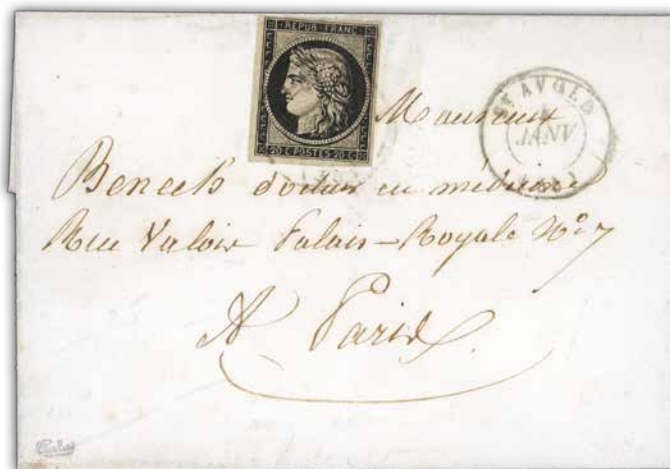 REPUB. FRANC.
20 C. POSTES 20 C.
ST AVOLD
JANV
Monsieur
Benech docteur en médecine
Rue Valois Palais-Royale No 7
A Paris